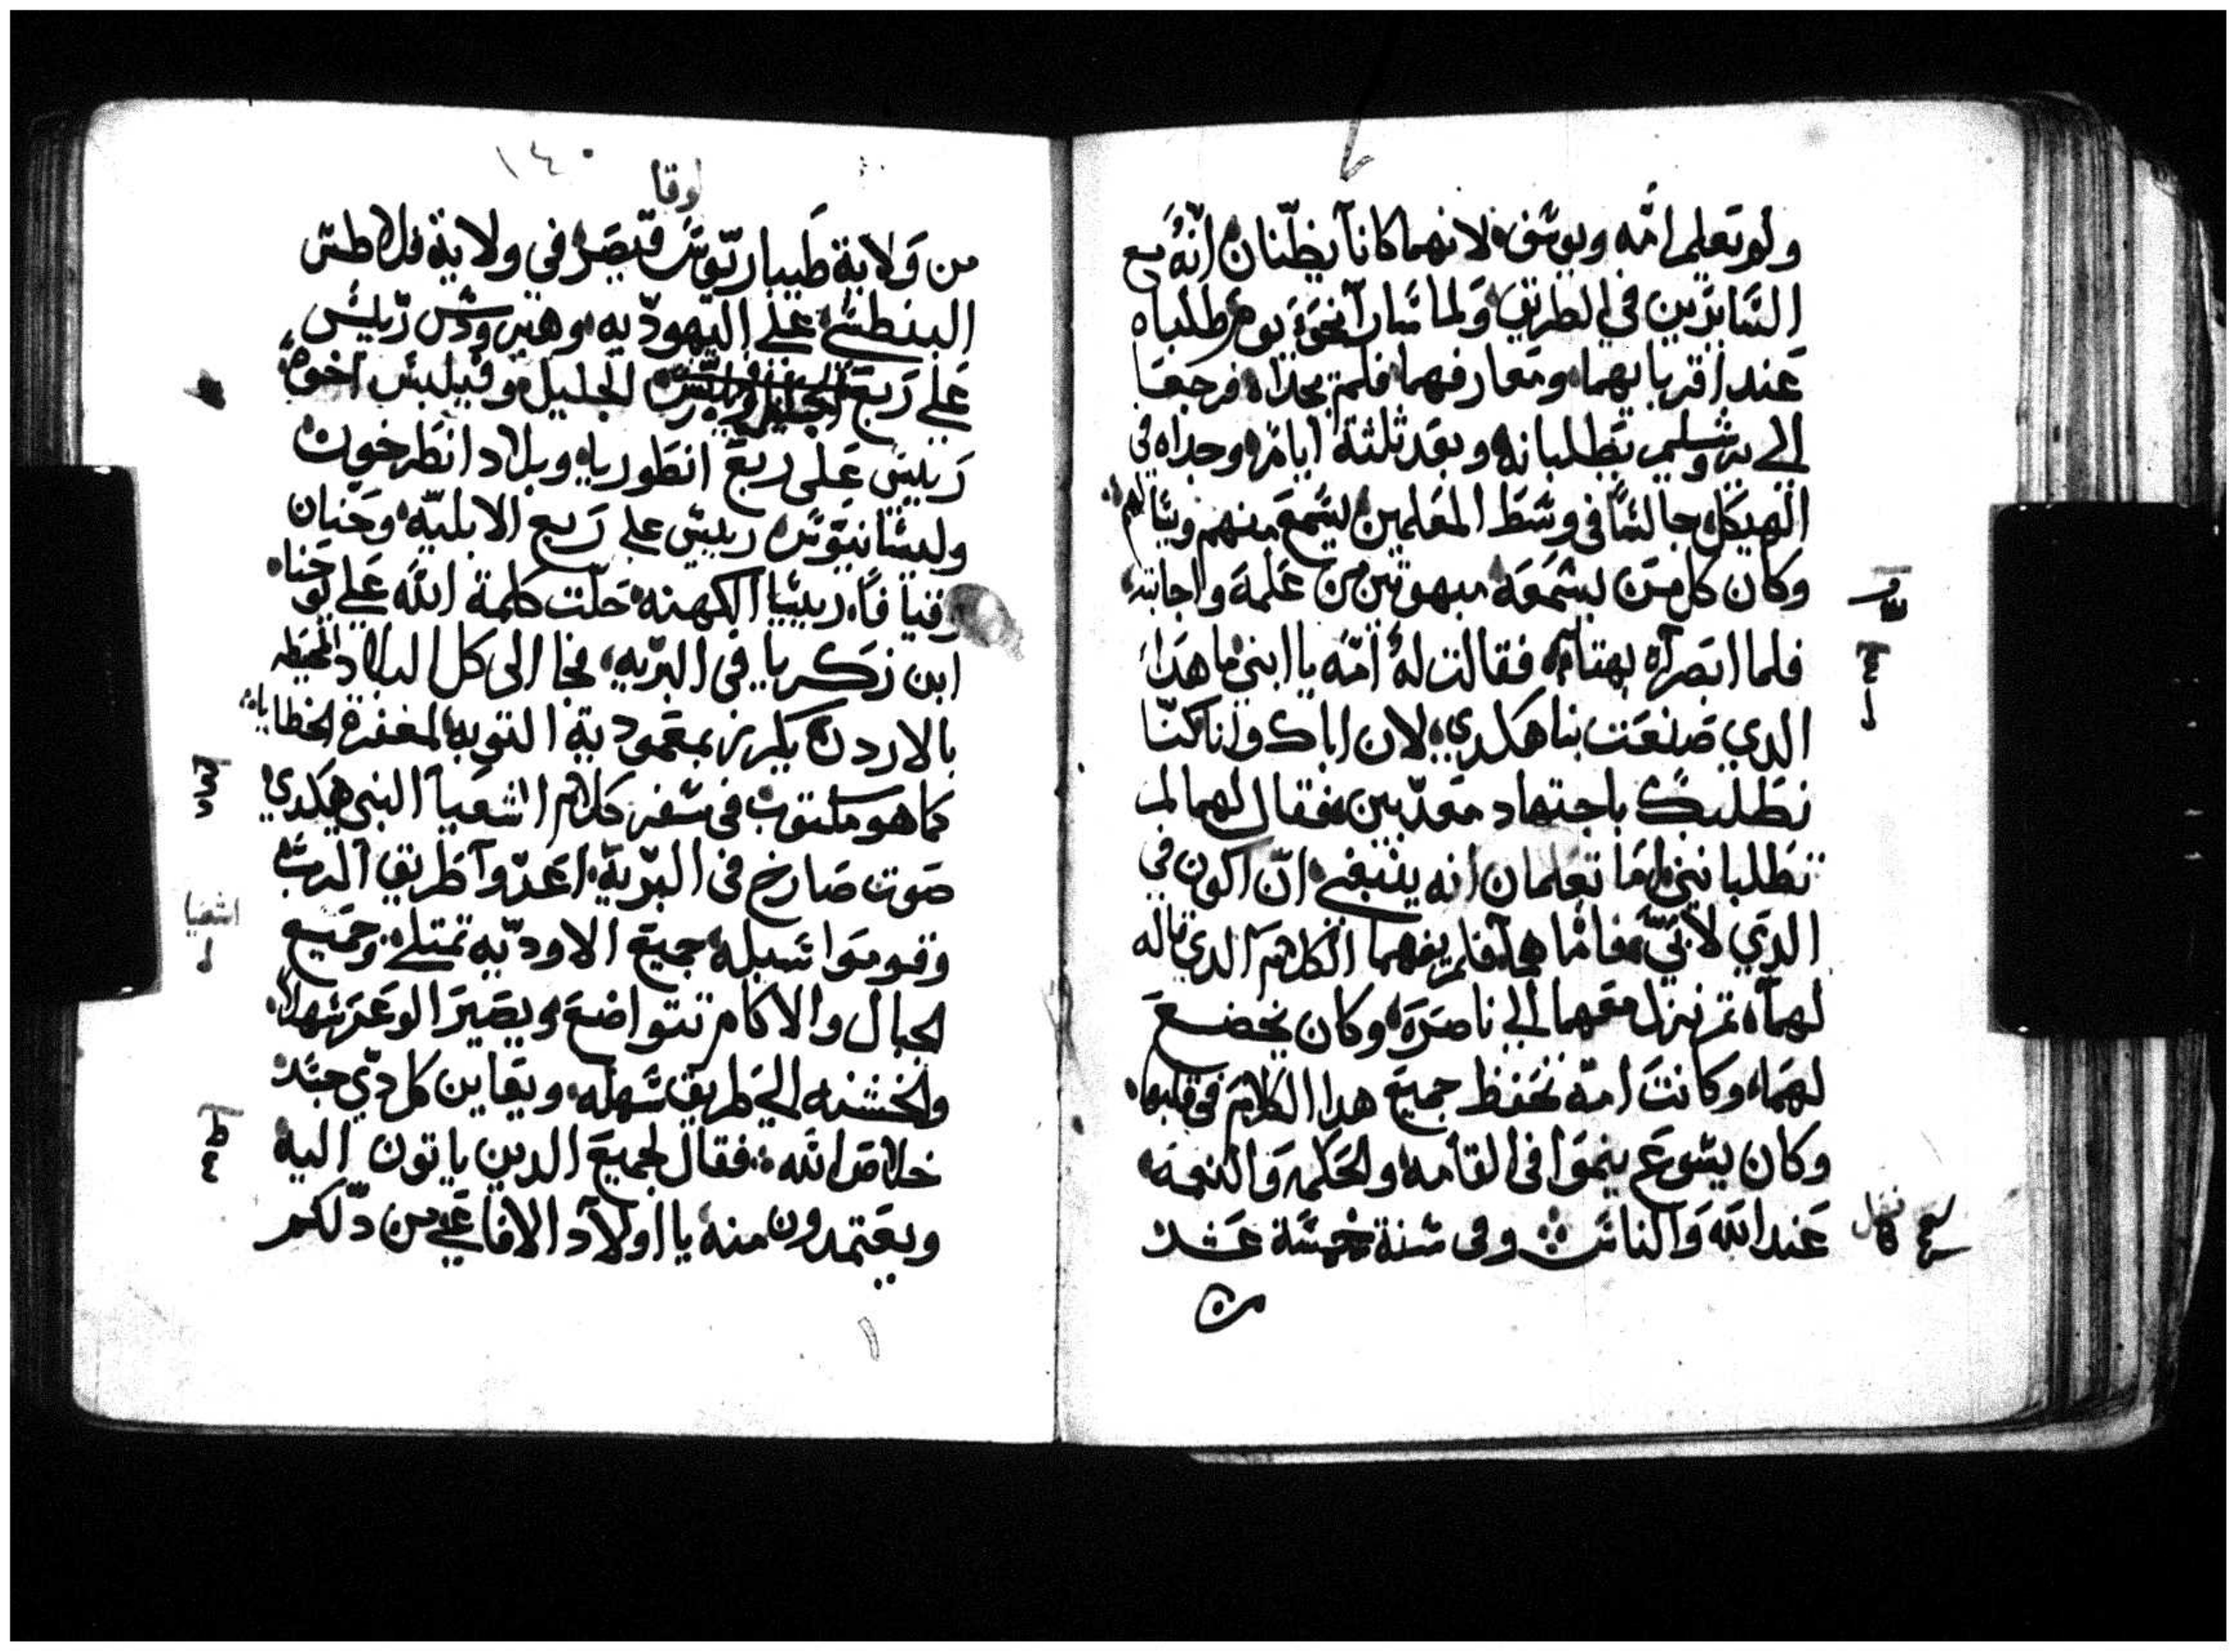 ولم تعلم امّه ويوسف لانهما كانا يظنّان انّهُ مع
السّايرين في الطريق ولما سارا نحو يوم طلباه
عند اقربايهما ومعارفهما فلم يجداه فرجعا
الي يروشليم يطلبانه وبعد ثلثة ايام وجداه في
الهيكل جالسًا في وسط المعلمين يسمع منهم ويسالهم
وكان كل من يسمعه مبهوتين من علمه واجابته
فلما ابصراه بهتا فقالت لهُ امّه يا ابني ما هدا
الدي صنعت بنا هكدي لان اباك وانا كنّا
نطلبك باجتهاد معدّبين فقال لهما لم
تطلباني اما تعلمان انه ينبغي انّ اكون في
الدي لابيّ فاما هما فلم يفهما الكلام الدي قاله
لهما ثم نزل معهما الي ناصره وكان يخضع
لهما وكانت امّه تحفظ جميع هدا الكلام في قلبها
وكان يسوع ينموا في القامه والحكمه والنعمه
عند الله والناس وفي سنة خمسة عشر
من
١٤٠
لوقا
من ولاية طيباريّوس قيصر في ولاية فلاطس
البنطسي علي اليهوديه وهيرودس رئيس
علي ربع الجليل وفيلبس اخوه
رييس على ربع انطورياه وبلاد انطرخون
وليسانيوس رييس علي ربع الابليّه وحنان
وقيافا رييسا الكهنه حلّت كلمة الله علي يوحنا
ابن زكريا في البريه فجا الى كل البلاد المحيطه
بالاردن يكرز بمعمودية التوبه لمغفرة الخطايا
كما هو مكتوب في سفر كلام اشعيا النبي هكدي
صوت صارخ في البرّية اعدّوا طريق الربّ
وقوموا سبله جميع الاوديه تمتلي وجميع
الجبال والاكام تتواضع ويصير الوعر سهلا
والخشنه الي طريق سهله ويعاين كل دي جسد
خلاص الله فقال لجميع الدين ياتون اليه
ويعتمدون منه يا اولاد الافاعي من دلّكم
اشعيا